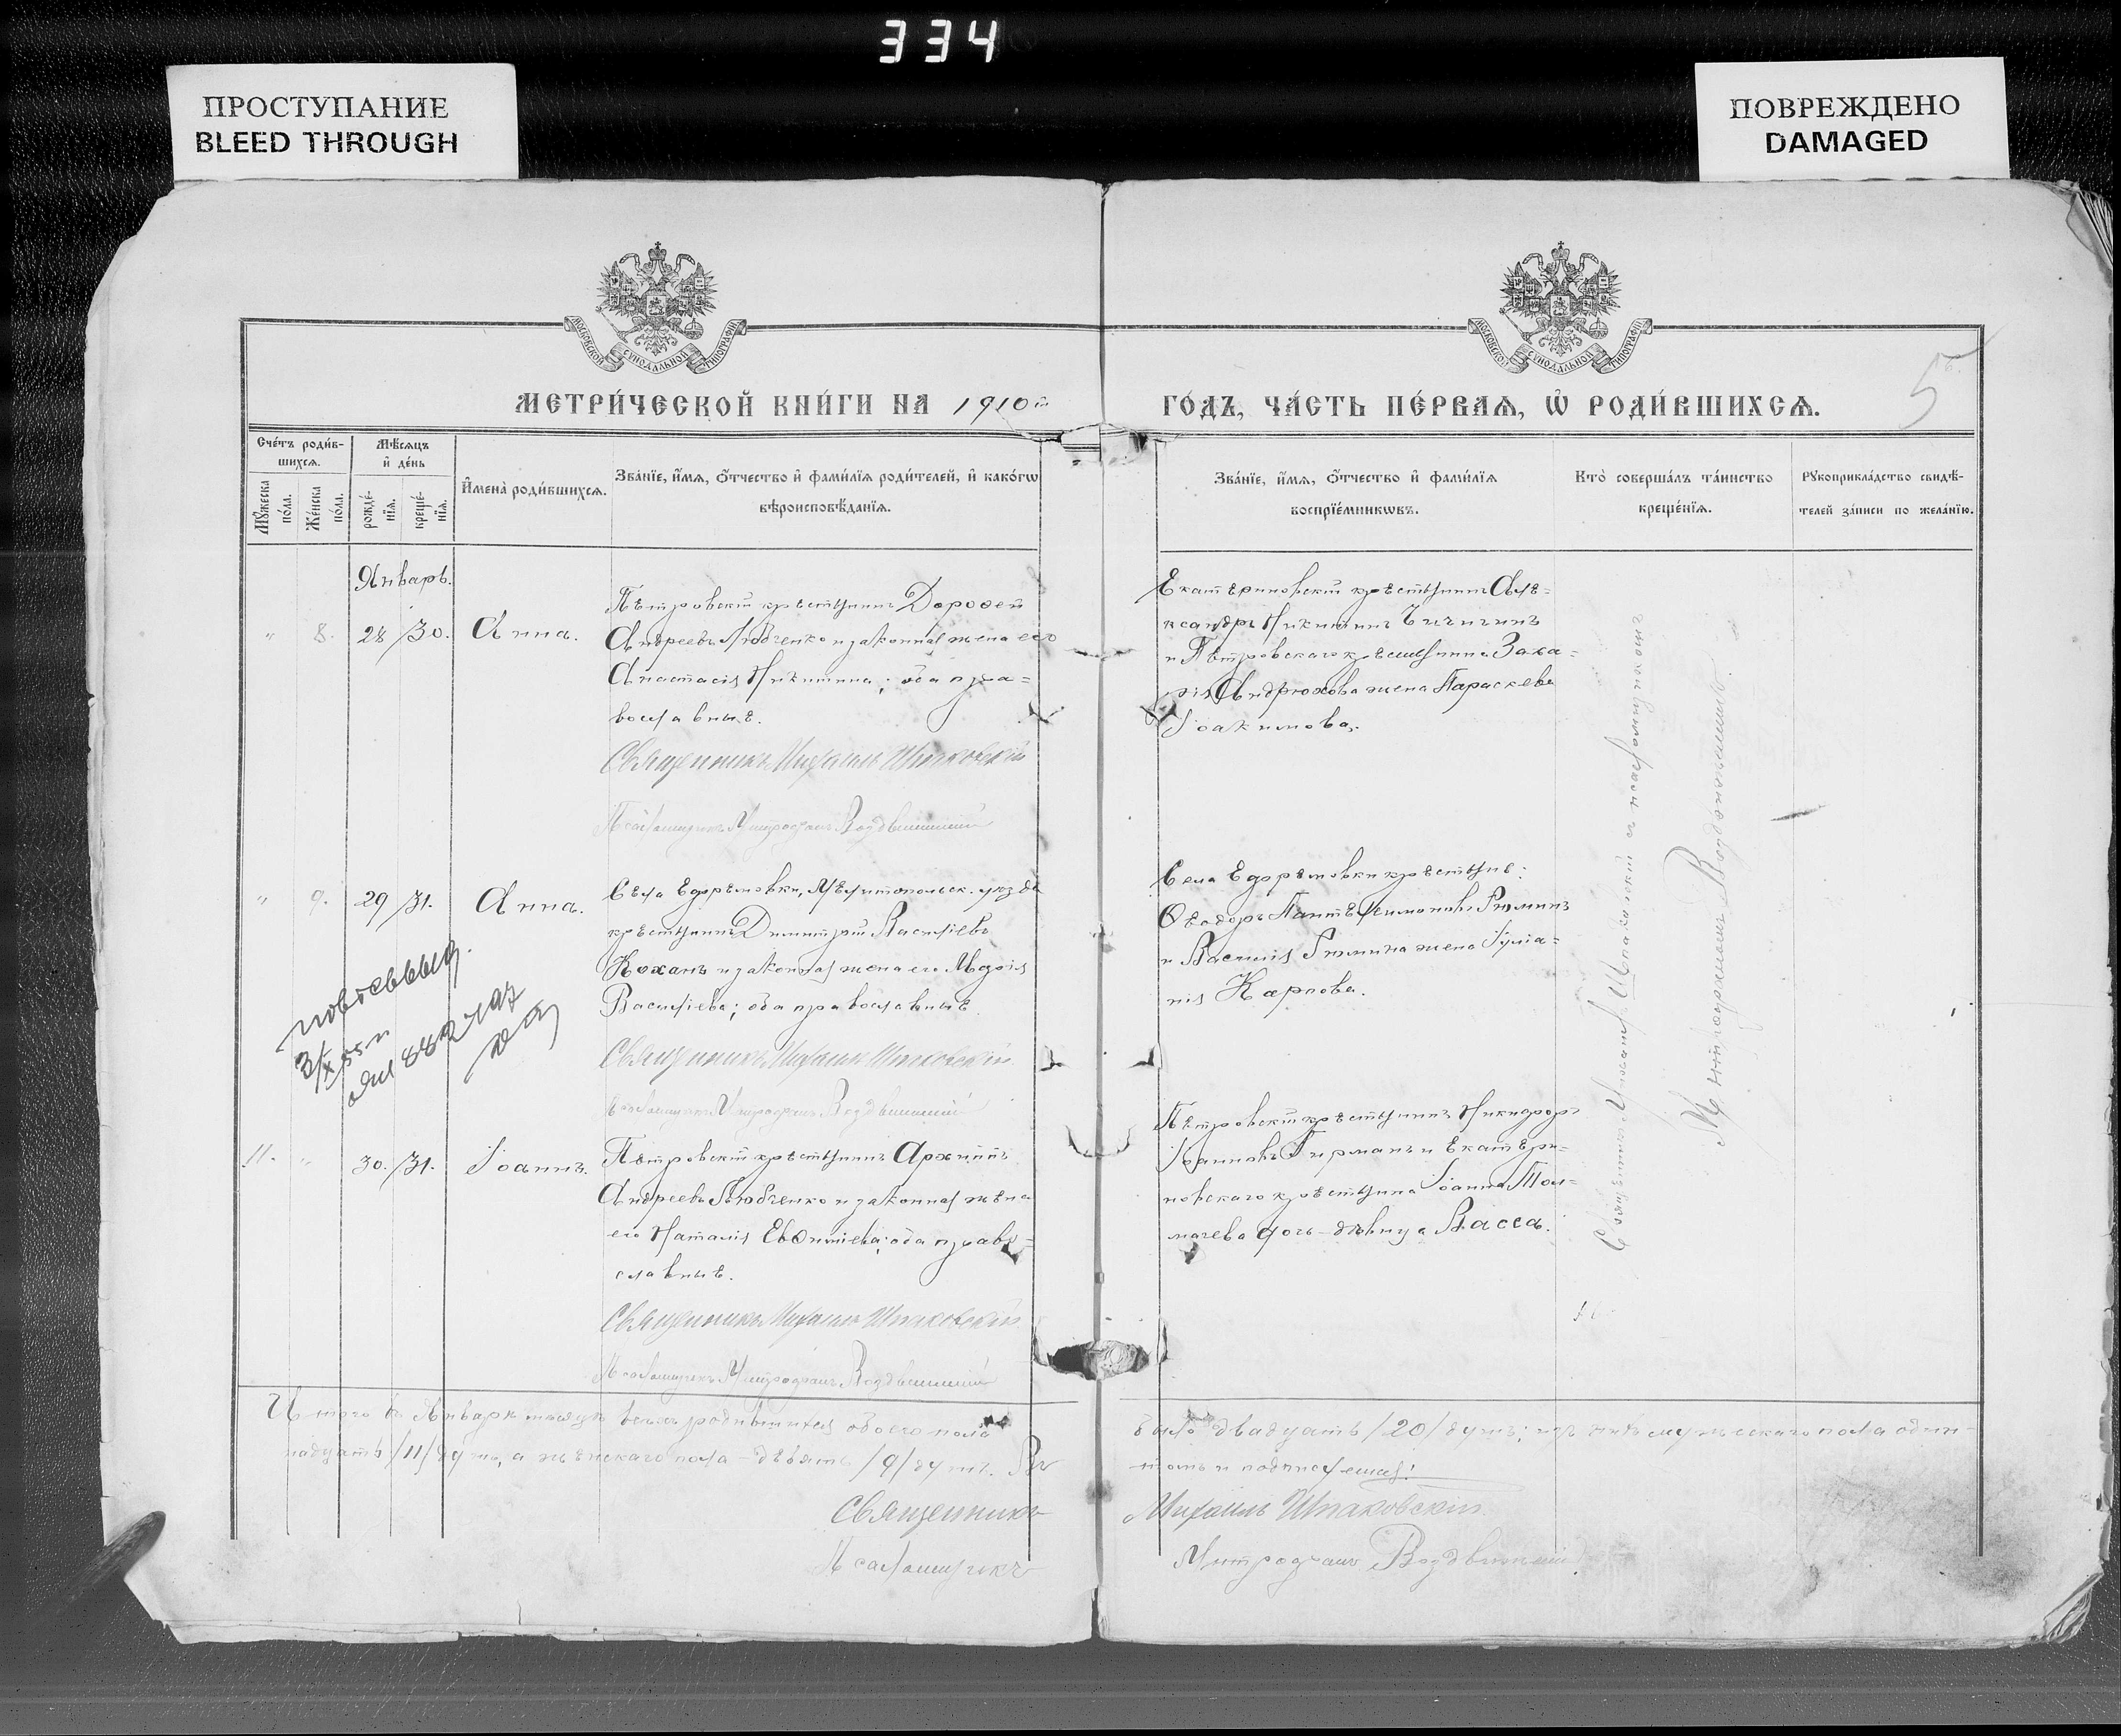 334
ПРОСТУПАНИЕ
BLEED THROUGH
ПОВРЕЖДЕНО
DAMAGED
МОСКОВСКОЙ СѴНОДАЛЬНОЙ ТИПОГРАФІИ
МОСКОВСКОЙ СѴНОДАЛЬНОЙ ТИПОГРАФІИ
5
МЕТРИ́ЧЕСКОЙ КНИ́ГИ НА 1910й
ГО́ДЪ, ЧА́СТЬ ПЕ́РВАѦ, Ѡ҆ РОДИ́ВШИХСѦ.
Сче́тъ роди́в-
шихсѧ.
Мꙋ́жеска по́ла.
Же́нска по́ла.
Мѣ́сѧцъ
и҆ де́нь
рожде́-
нїѧ.
креще́-
нїѧ.
И҆мена̀ роди́вшихсѧ.
Зва́нїе, и҆́мѧ, ѻ҆́тчество и҆ фами́лїѧ роди́телей, и҆ како́гѡ
вѣроисповѣ́данїѧ.
Зва́нїе, и҆́мѧ, ѻ҆́тчество и҆ фами́лїѧ
воспрїе́мникѡвъ.
Кто̀ соверша́лъ та́инство
креще́нїѧ.
Рꙋкоприкла́дство свидѣ́-
телей за́писи по жела́нїю.
Январь.
" 8. 28 /30. Анна.
Петровскій крестьянинъ Дороѳей
Андреевъ Любченко и законная жена его
Анастасія Никитина; оба пра=
вославные.
Священникъ Михаилъ Шпаковскій
Псаломщикъ Митрофанъ Воздвиженскій
Екатериновскій крестьянинъ Але=
ксандръ Никитинъ Чичигинъ
и Петровскаго крестьянина Заха=
рія Андрюхова жена Параскева
Іоакимова.
" 9. 29 /31. Анна.
Села Ефремовки, Мелитопольск. уезда
крестьянинъ Димитрій Васильевъ
Коханъ и законная жена его Марія
Васильева; оба православные.
Священникъ Михаилъ Шпаковскій
Псаломщикъ Митрофанъ Воздвиженскій
Села Ефремовки крестьяне:
Ѳеодоръ Пантелеимоновъ Рюминъ
и Василія Рюмина жена Іуліа=
нія Карпова.
11. " 30. /31. Іоаннъ.
Петровскій крестьянинъ Архиппъ
Андреевъ Любченко и законная жена
его Наталія Евѳиміева; оба право=
славные.
Священникъ Михаилъ Шпаковскій
Псаломщикъ Митрофанъ Воздвиженскій
Петровскій крестьянинъ Никифоръ
Іоанновъ Гирманъ и Екатери=
новскаго крестьянина Іоанна Тол=
мачева дочь-девица Васса.
Священникъ Михаилъ Шпаковскій съ псаломщикомъ
Митрофаномъ Воздвиженскимъ.
Итого въ Январе месяце всехъ родившихся обоего пола
было двадцать /20/ душъ; изъ нихъ мужескаго пола один-
надцать /11/ душъ, а женскаго пола - девять /9/ душъ. Въ
томъ и подписуемся:
Священникъ Михаилъ Шпаковскій.
Псаломщикъ Митрофанъ Воздвиженскій.